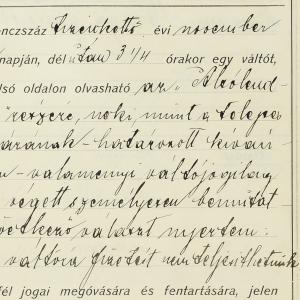 enczszáz tizenkettő évi november
napján, dél után 3 1/4 órakor egy váltót,
lsó oldalon olvasható az „Alsólend
részére, noki, mint a telepe
arának - határozott kíván
n - valamenyi váltójogilag
végett személyesen bemutat
vetkező választ nyertem:
váltóra fizetést nem teljesíthetünk
fél jogai megóvására és fentartására, jelen